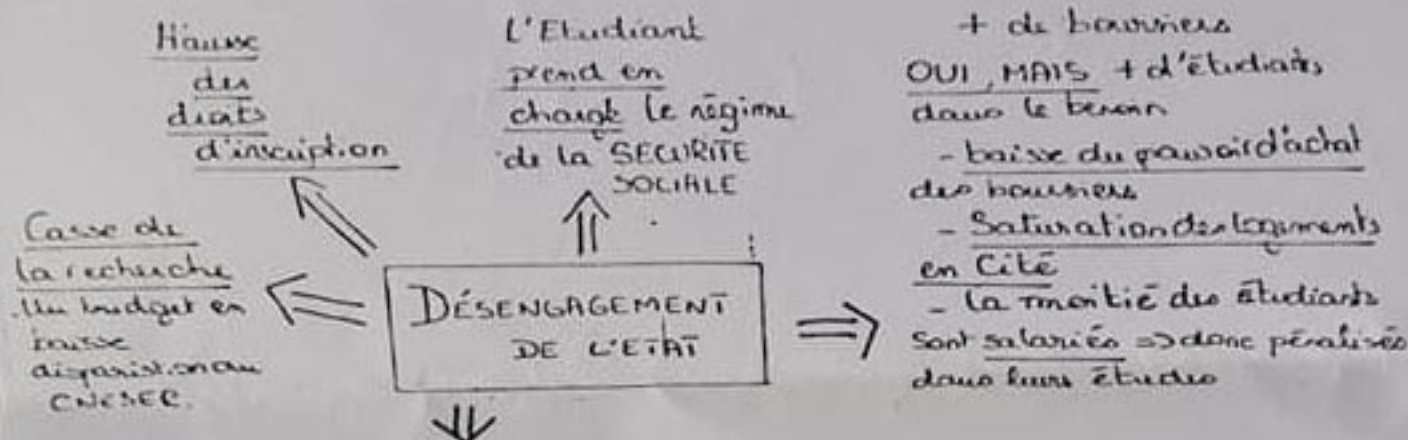 Hausse
des
droits
d'inscription
L'Etudiant
prend en
charge le régime
de la SECURITE
SOCIALE
+ de boursiers
OUI, MAIS + d'étudiants
dans le besoin
- baisse du pouvoir d'achat
des boursiers
- Saturation des logements
en Cité
- la moitié des étudiants
sont salariés => donc pénalisés
dans leurs études
Casse de
la recherche
.Un budget en
baisse
disparition du
DÉSENGAGEMENT
DE L'ETAT